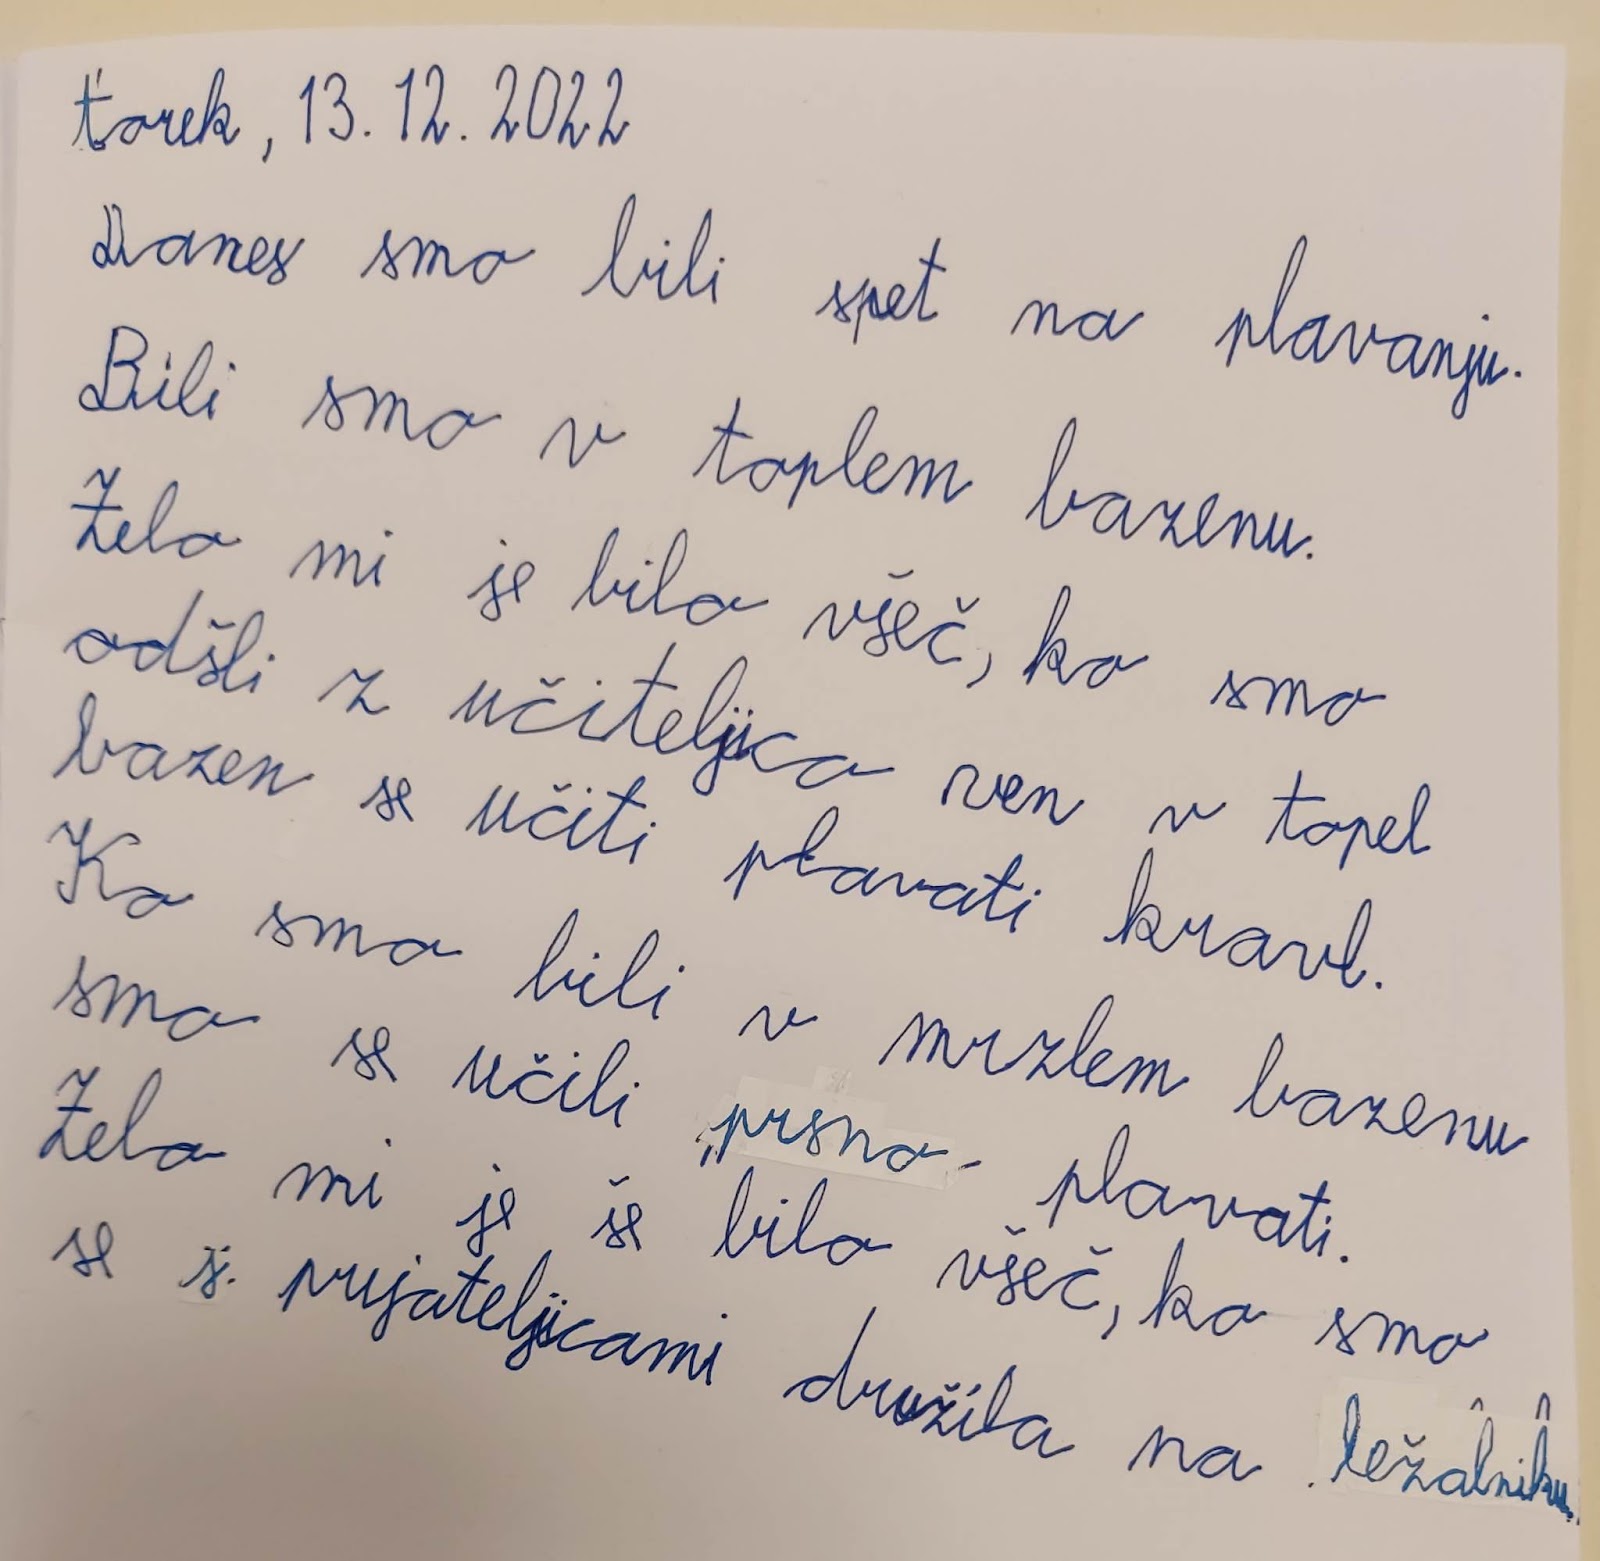 torek, 13. 12. 2022
Danes smo bili spet na plavanju.
Bili smo v toplem bazenu.
Zelo mi je bilo všeč, ko smo
odšli z učiteljico ven v topel
bazen se učiti plavati kravl.
Ko smo bili v mrzlem bazenu
smo se učili prsno plavati.
Zelo mi je še bilo všeč, ko smo
se s prijateljicami družila na ležalniku.